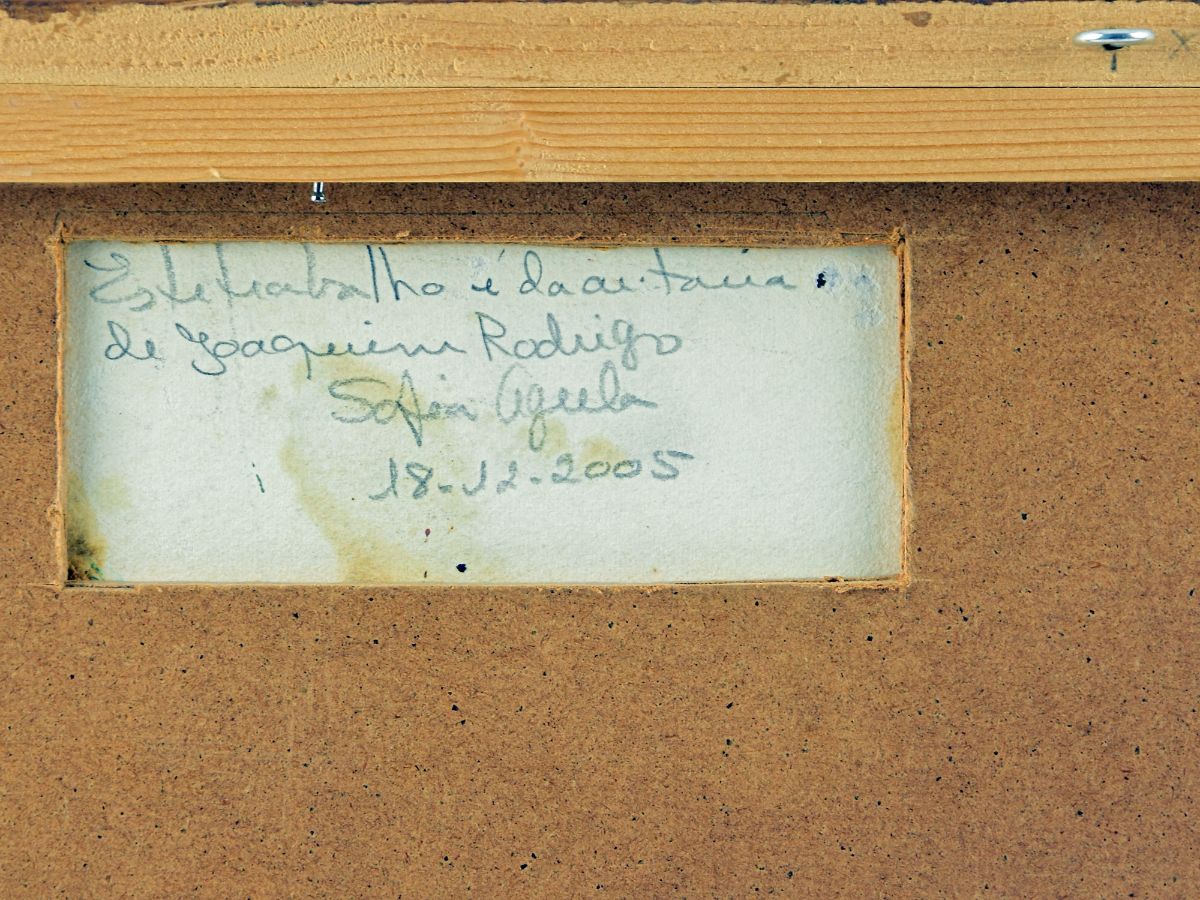 Este trabalho é da autoria
de Joaquim Rodrigo
Sofia Aguela
18-12-2005